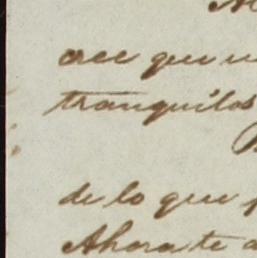 cree que
tranquilos
de lo que
Ahora te